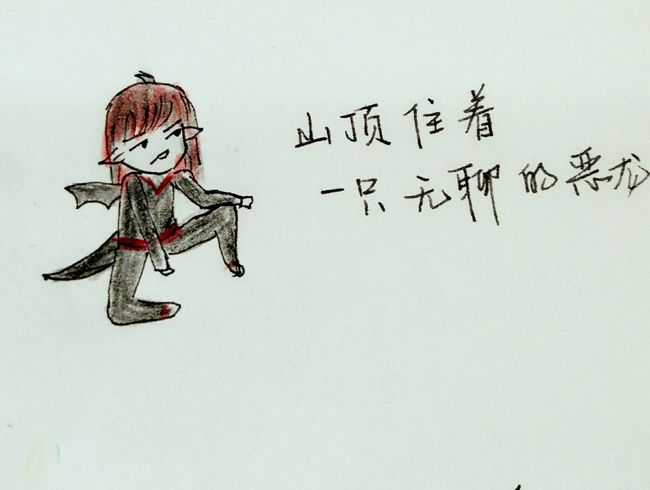 山顶住着
一只无聊的恶龙